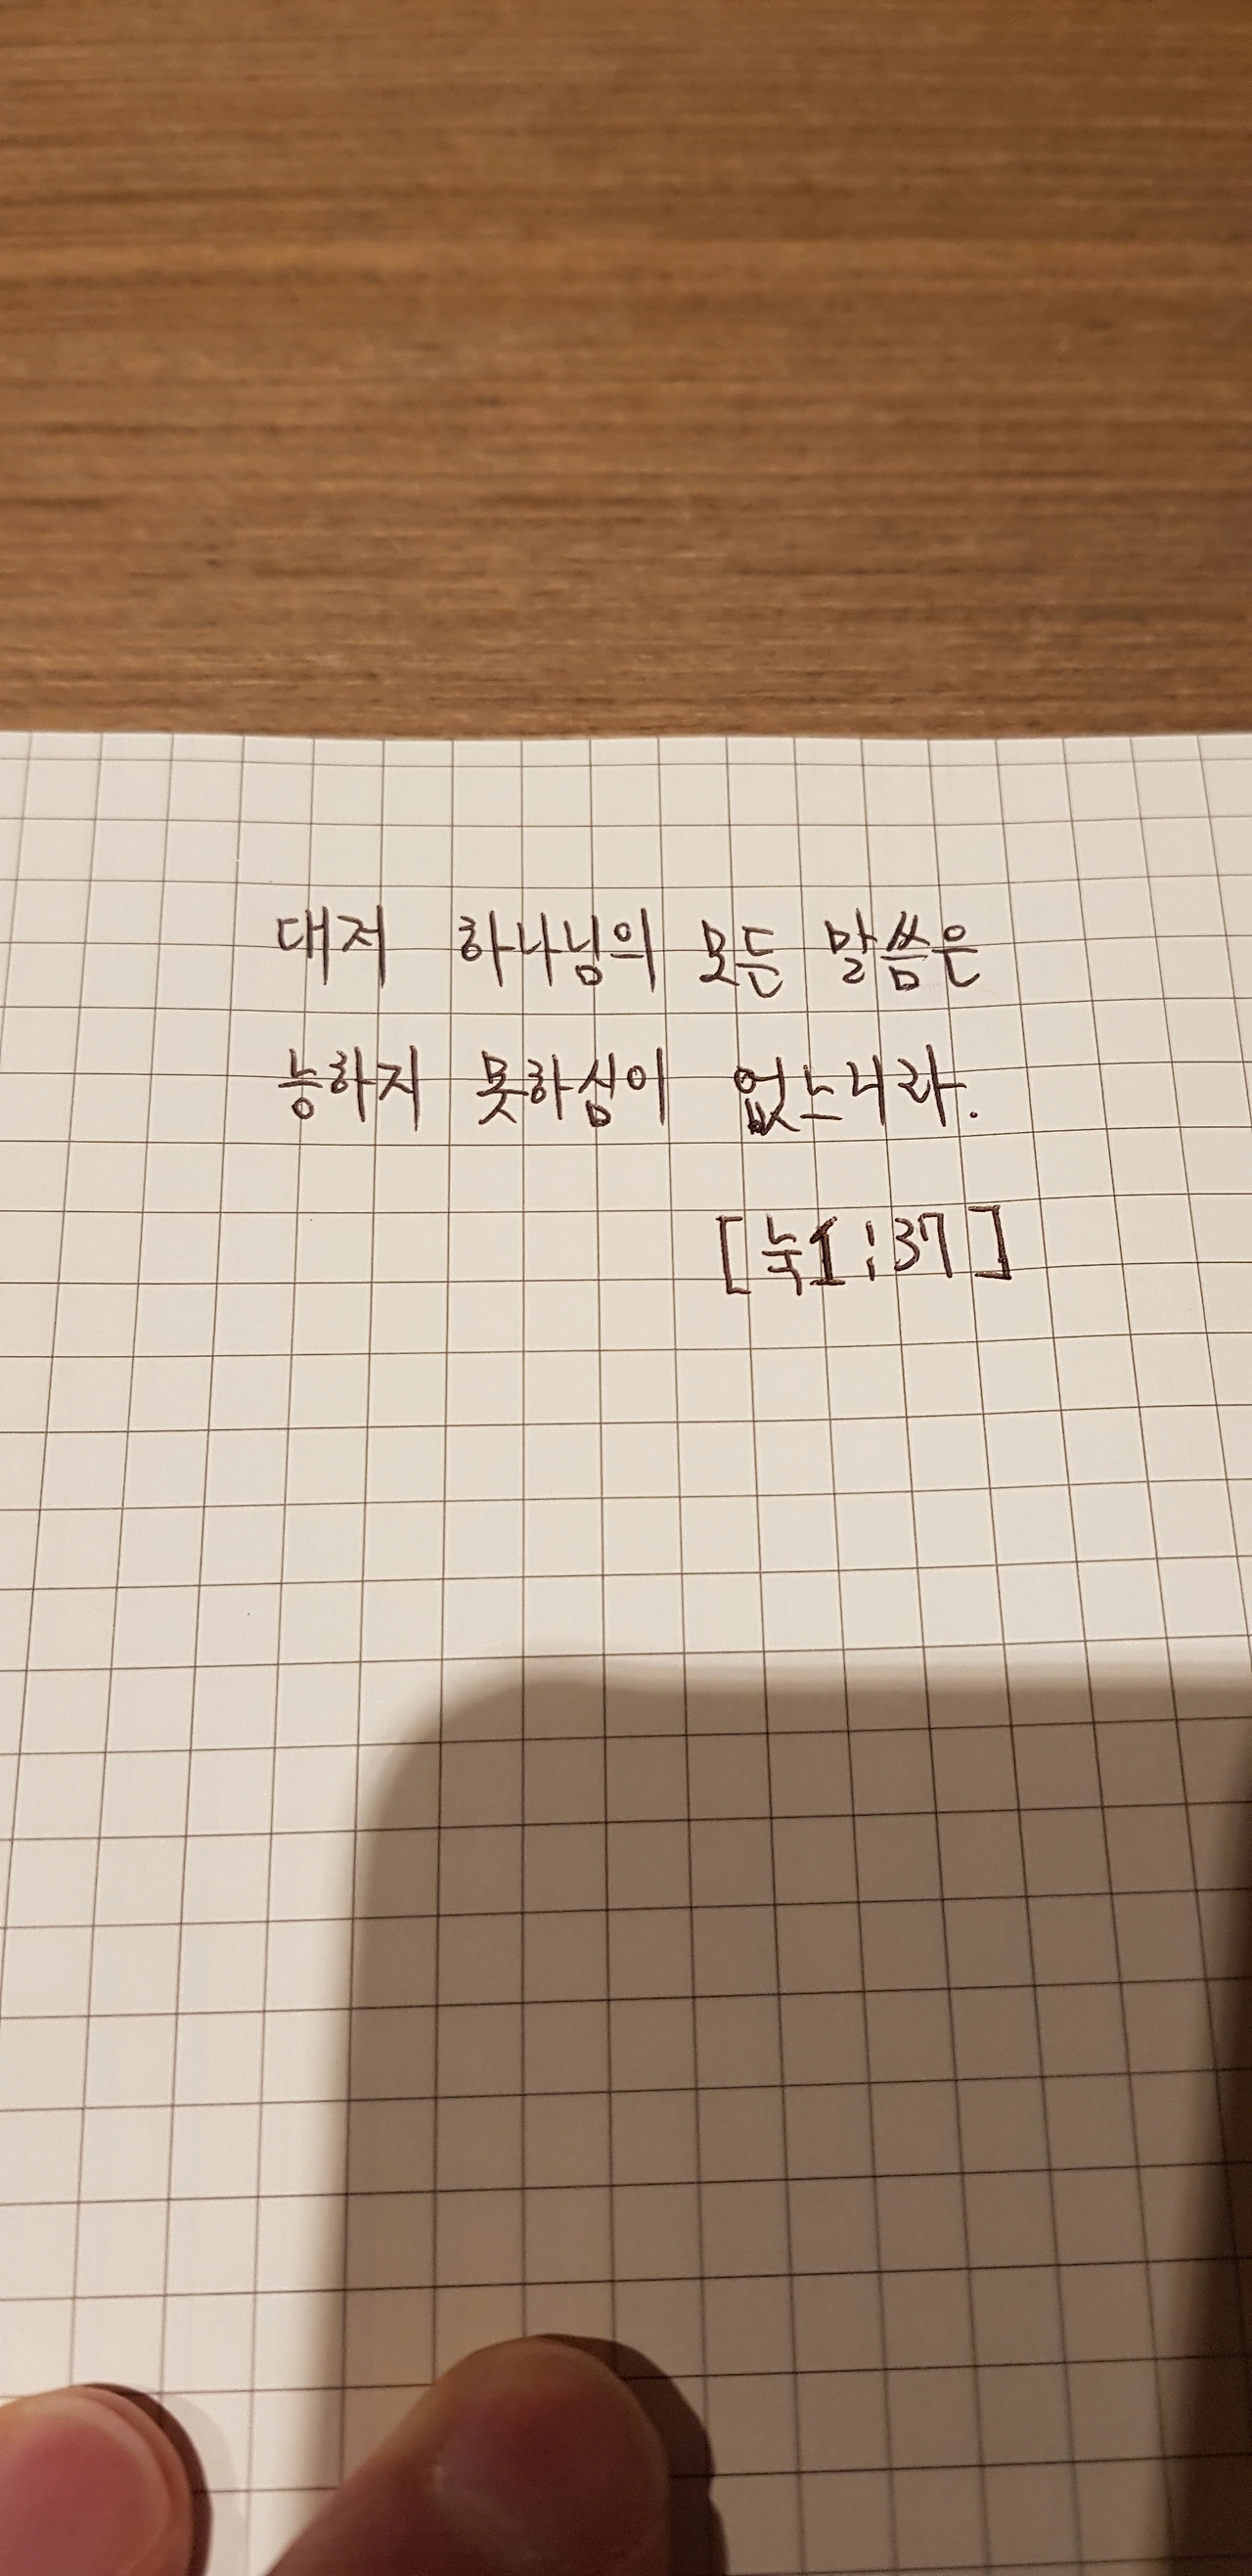 대저 하나님의 모든 말씀은
능하지 못하심이 없느니라.
[눅1:37]